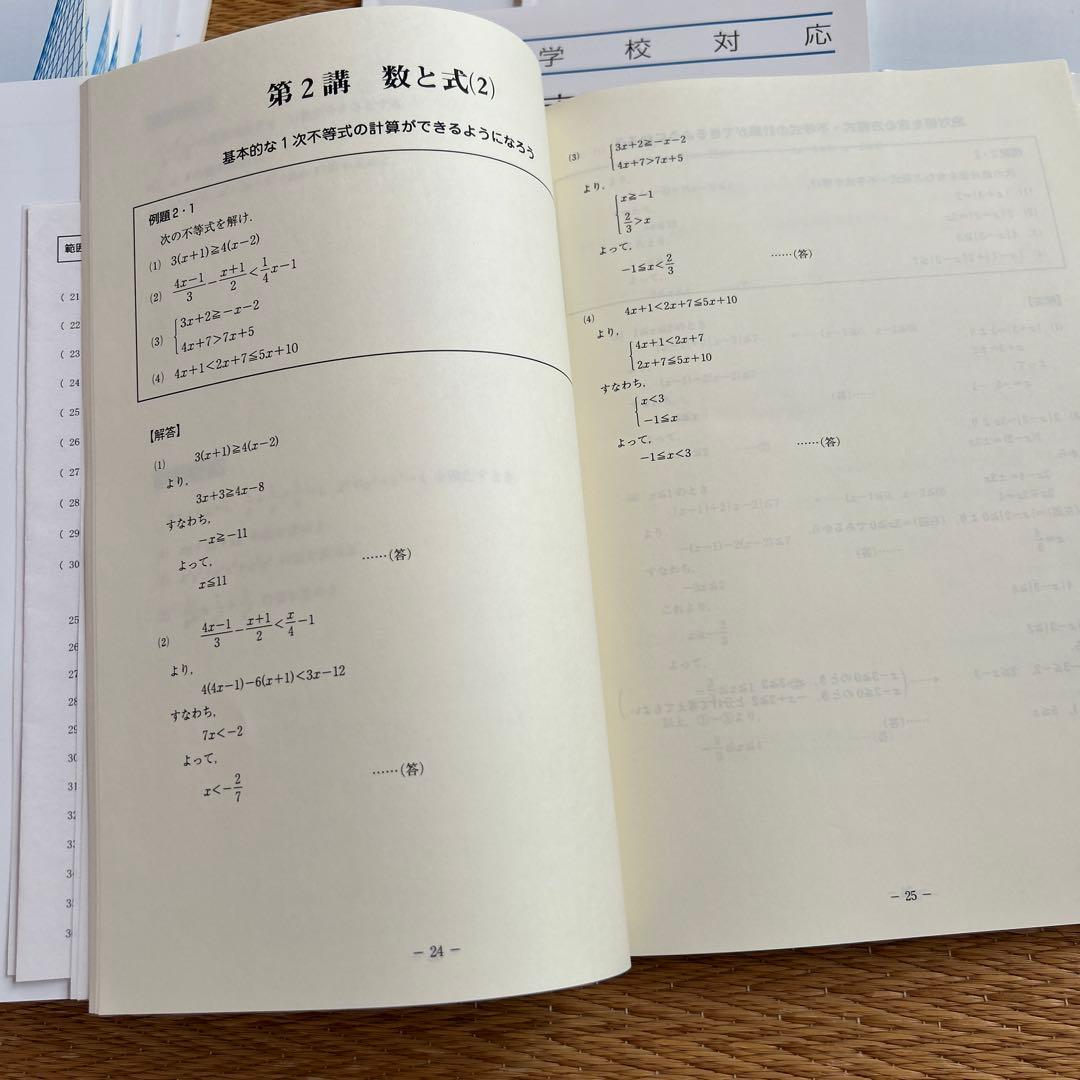 学校対応
第2講 数と式(2)
基本的な1次不等式の計算ができるようになろう
例題2・1
次の不等式を解け.
(1) 3(x+1)≧4(x−2)
(2) \frac{4x−1}{3}−\frac{x+1}{2}<\frac{1}{4}x−1
(3) {3x+2≧−x−2
4x+7>7x+5
(4) 4x+1<2x+7≦5x+10
【解答】
(1) 3(x+1)≧4(x−2)
より,
3x+3≧4x−8
すなわち,
−x≧−11
よって,
x≦11 ……(答)
(2) \frac{4x−1}{3}−\frac{x+1}{2}<\frac{x}{4}−1
より,
4(4x−1)−6(x+1)<3x−12
すなわち,
7x<−2
よって,
x<−\frac{2}{7} ……(答)
− 24 −
(3) {3x+2≧−x−2
4x+7>7x+5
より,
{x≧−1
\frac{2}{3}>x
よって,
−1≦x<\frac{2}{3} ……(答)
(4) 4x+1<2x+7≦5x+10
より,
{4x+1<2x+7
2x+7≦5x+10
すなわち,
{x<3
−1≦x
よって,
−1≦x<3 ……(答)
− 25 −
範囲
( 21
( 22
( 23
( 24
( 25
( 26
( 27
( 28
( 29
( 30
25
26
27
28
29
30
31
32
33